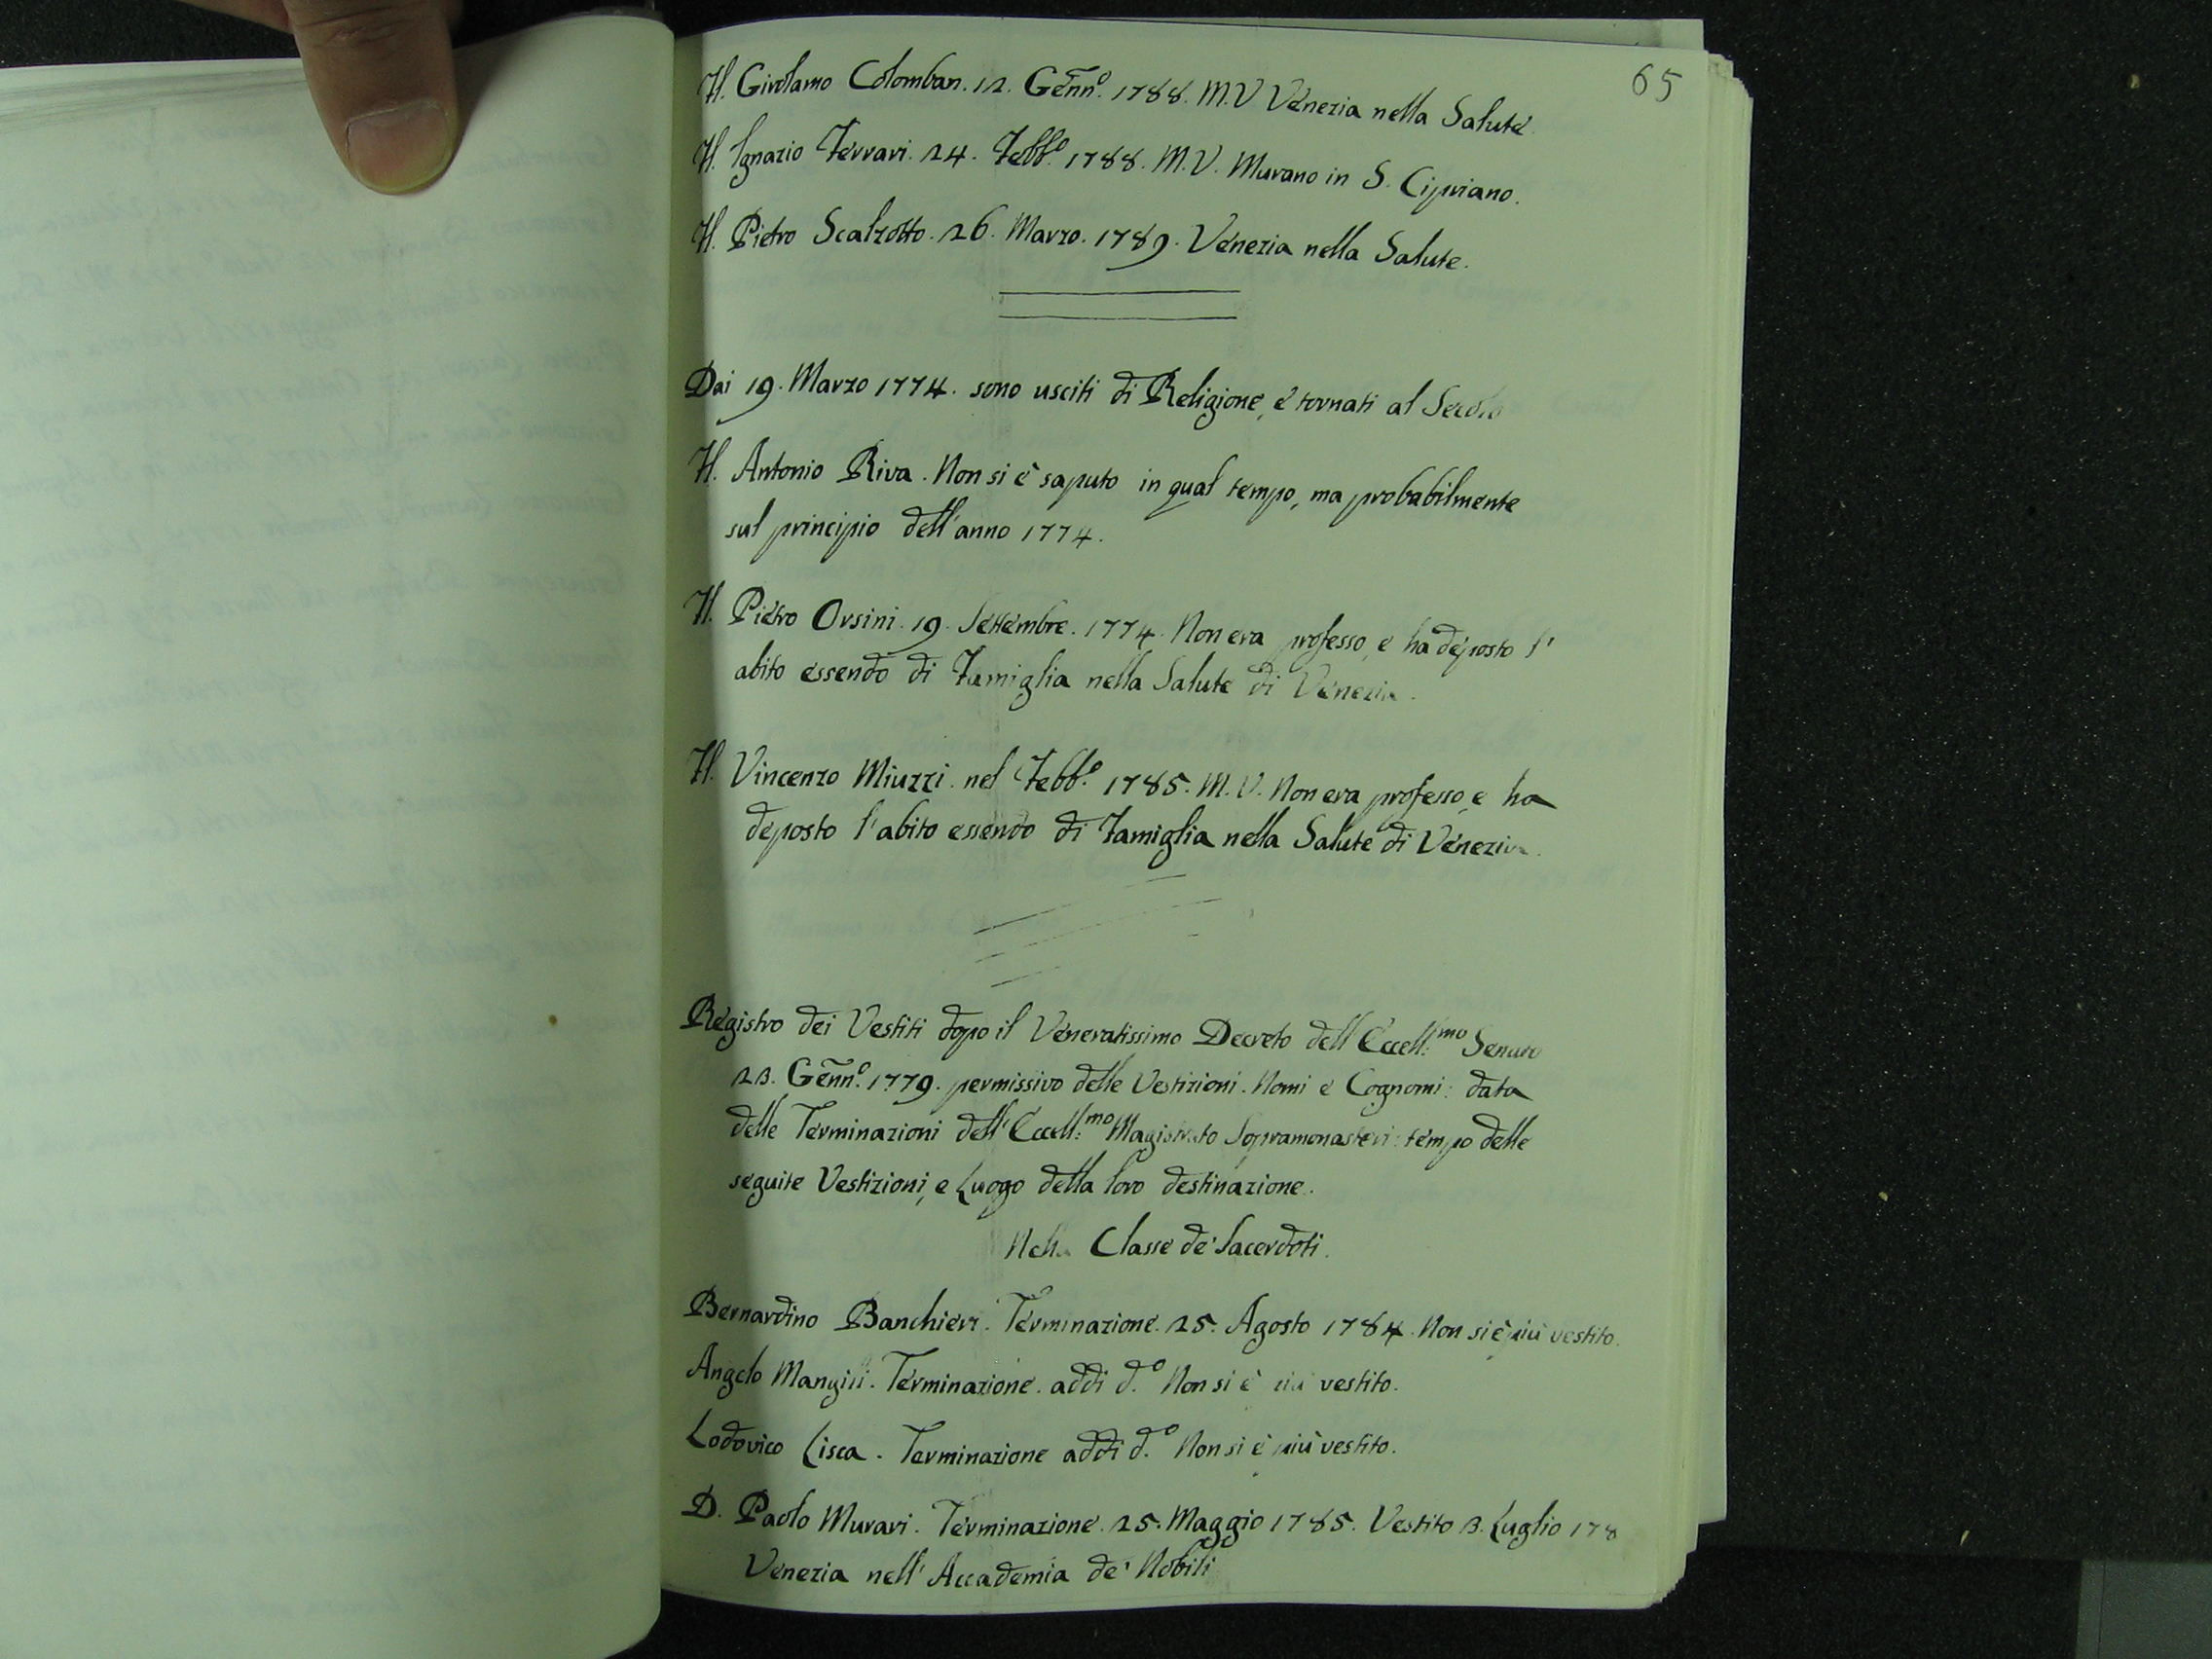 65
H. Girolamo Colomban. 12. Genn.º 1788. M.V Venezia nella Salute.
H. Ignazio Ferrari. 24. Febb.º 1788. M.V. Murano in S. Cipriano.
H. Pietro Scalzotto. 26. Marzo. 1789. Venezia nella Salute.
Dai 19. Marzo 1774. sono usciti di Religione, e tornati al Secolo
H. Antonio Riva. Non si è saputo in qual tempo, ma probabilmente
sul principio dell'anno 1774.
H. Pietro Orsini. 19. Settembre. 1774. Non era professo, e ha deposto l'
abito essendo di Famiglia nella Salute di Venezia.
H. Vincenzo Miuzzi. nel Febb.º 1785. M.V. Non era professo, e ha
deposto l'abito essendo di Famiglia nella Salute di Venezia.
Registro dei Vestiti dopo il Veneratissimo Decreto dell'Eccell:mo Senato
23. Genn.º 1779. permissivo delle Vestizioni. Nomi e Cognomi: data
delle Terminazioni dell'Eccell:mo Magistrato Sopramonasteri: tempo delle
seguite Vestizioni, e Luogo della loro destinazione.
Nella Classe de' Sacerdoti.
Bernardino Banchieri. Terminazione. 25. Agosto 1784. Non si è più vestito.
Angelo Mangili. Terminazione. addi d.º Non si è più vestito.
Lodovico Lisca. Terminazione addi d.º Non si è più vestito.
D. Paolo Murari. Terminazione. 25. Maggio 1785. Vestito 3. Luglio 178
Venezia nell'Accademia de' Nobili